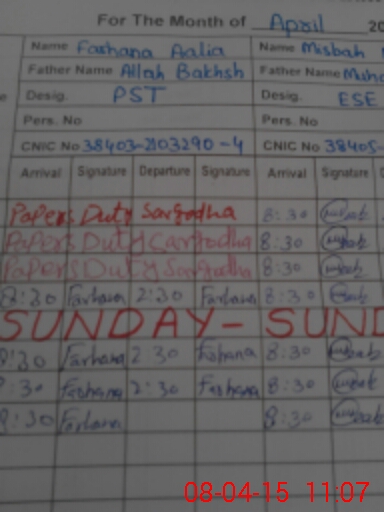 For The Month of April 20
Name Farhana Aalia Name Misbah
Father Name Allah Bakhsh Father Name
Desig. PST Desig. ESE
Pers. No Pers. No
CNIC No 38403-2103290-4 CNIC No 38405-
Arrival Signature Departure Signature Arrival Signature
Papers Duty Sargodha 8:30
Papers Duty Sargodha 8:30
Papers Duty Sargodha 8:30
8:30 Farhana 2:30 Farhana 8:30
SUNDAY - SUND
8:30 Farhana 2:30 Farhana 8:30
8:30 Farhana 2:30 Farhana 8:30
8:30 Farhana 8:30
08-04-15 11:07